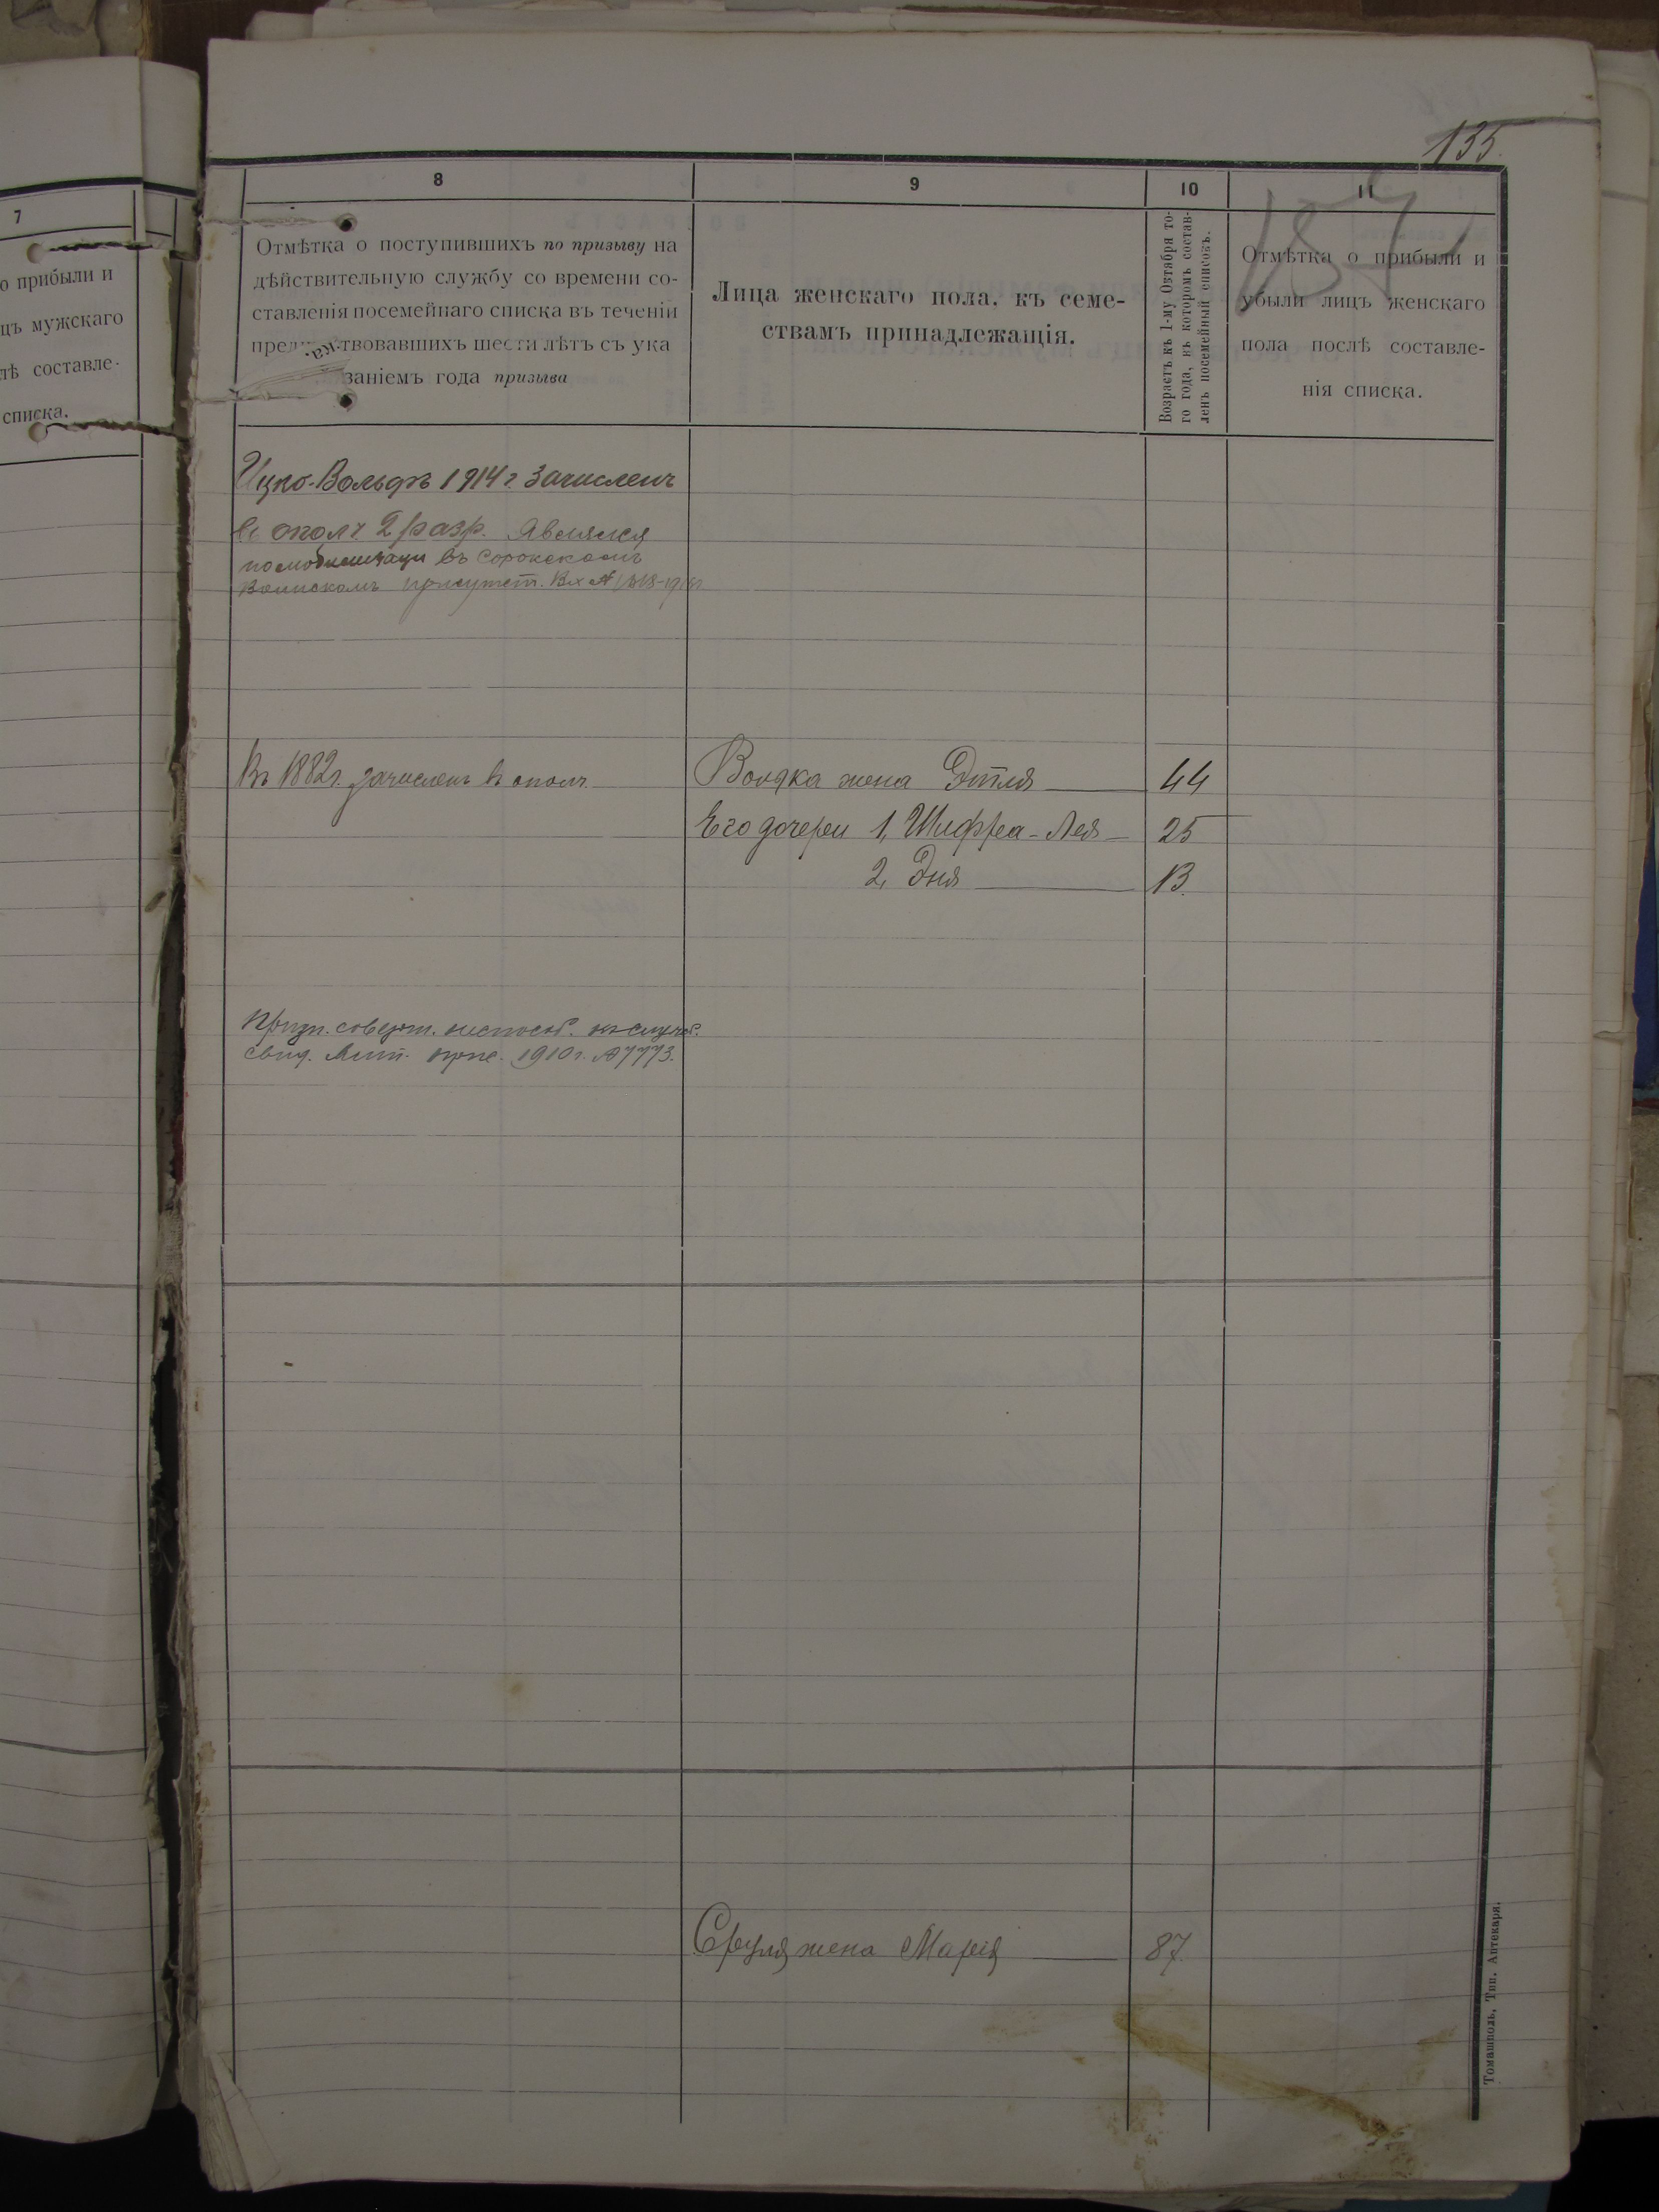 135.
157
7
о прибыли и
цъ мужскаго
лѣ составле-
списка.
8
Отмѣтка о поступившихъ по призыву на
дѣйствительную службу со времени со-
ставленія посемейнаго списка въ теченіи
пред твовавшихъ шести лѣтъ съ ука
заніемъ года призыва
9
Лица женскаго пола. къ семе-
ствамъ принадлежащія.
10
Возрастъ къ 1-му Октября то-
го года, въ которомъ состав-
ленъ посемейный списокъ.
11
Отмѣтка о прибыли и
убыли лицъ женскаго
пола послѣ составле-
нія списка.
Ицко-Вольфъ 1914 г. зачисленъ
в ополч 2 разр. Являлся
по мобилизаци въ Сорокскомъ
Воинскомъ присутст. Вх №
Въ 1882 г. зачисленъ в ополч.
Волька жена Этля 44
Его дочери 1, Шифра-Лея 25
2, Эня 13.
Призн. соверш. неспособ. къ служб.
свид. прис. 1910 г. № 7773.
Сруля жена Марія 87.
Томашполь, Тип. Аптекаря.